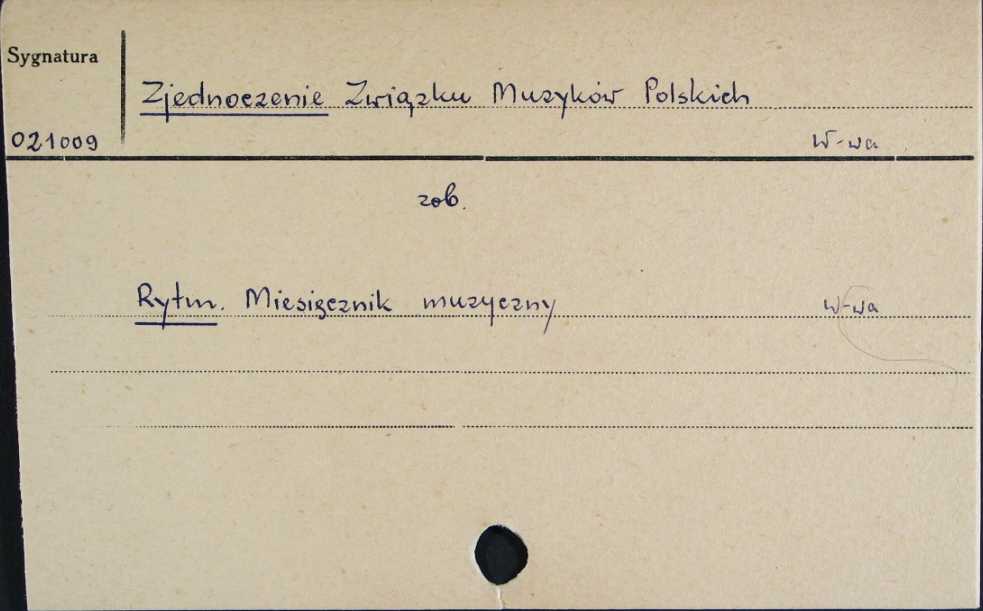 Sygnatura
Zjednoczenie Związku Muzyków Polskich
021009 W-wa
zob.
Rytm. Miesięcznik muzyczny W-wa